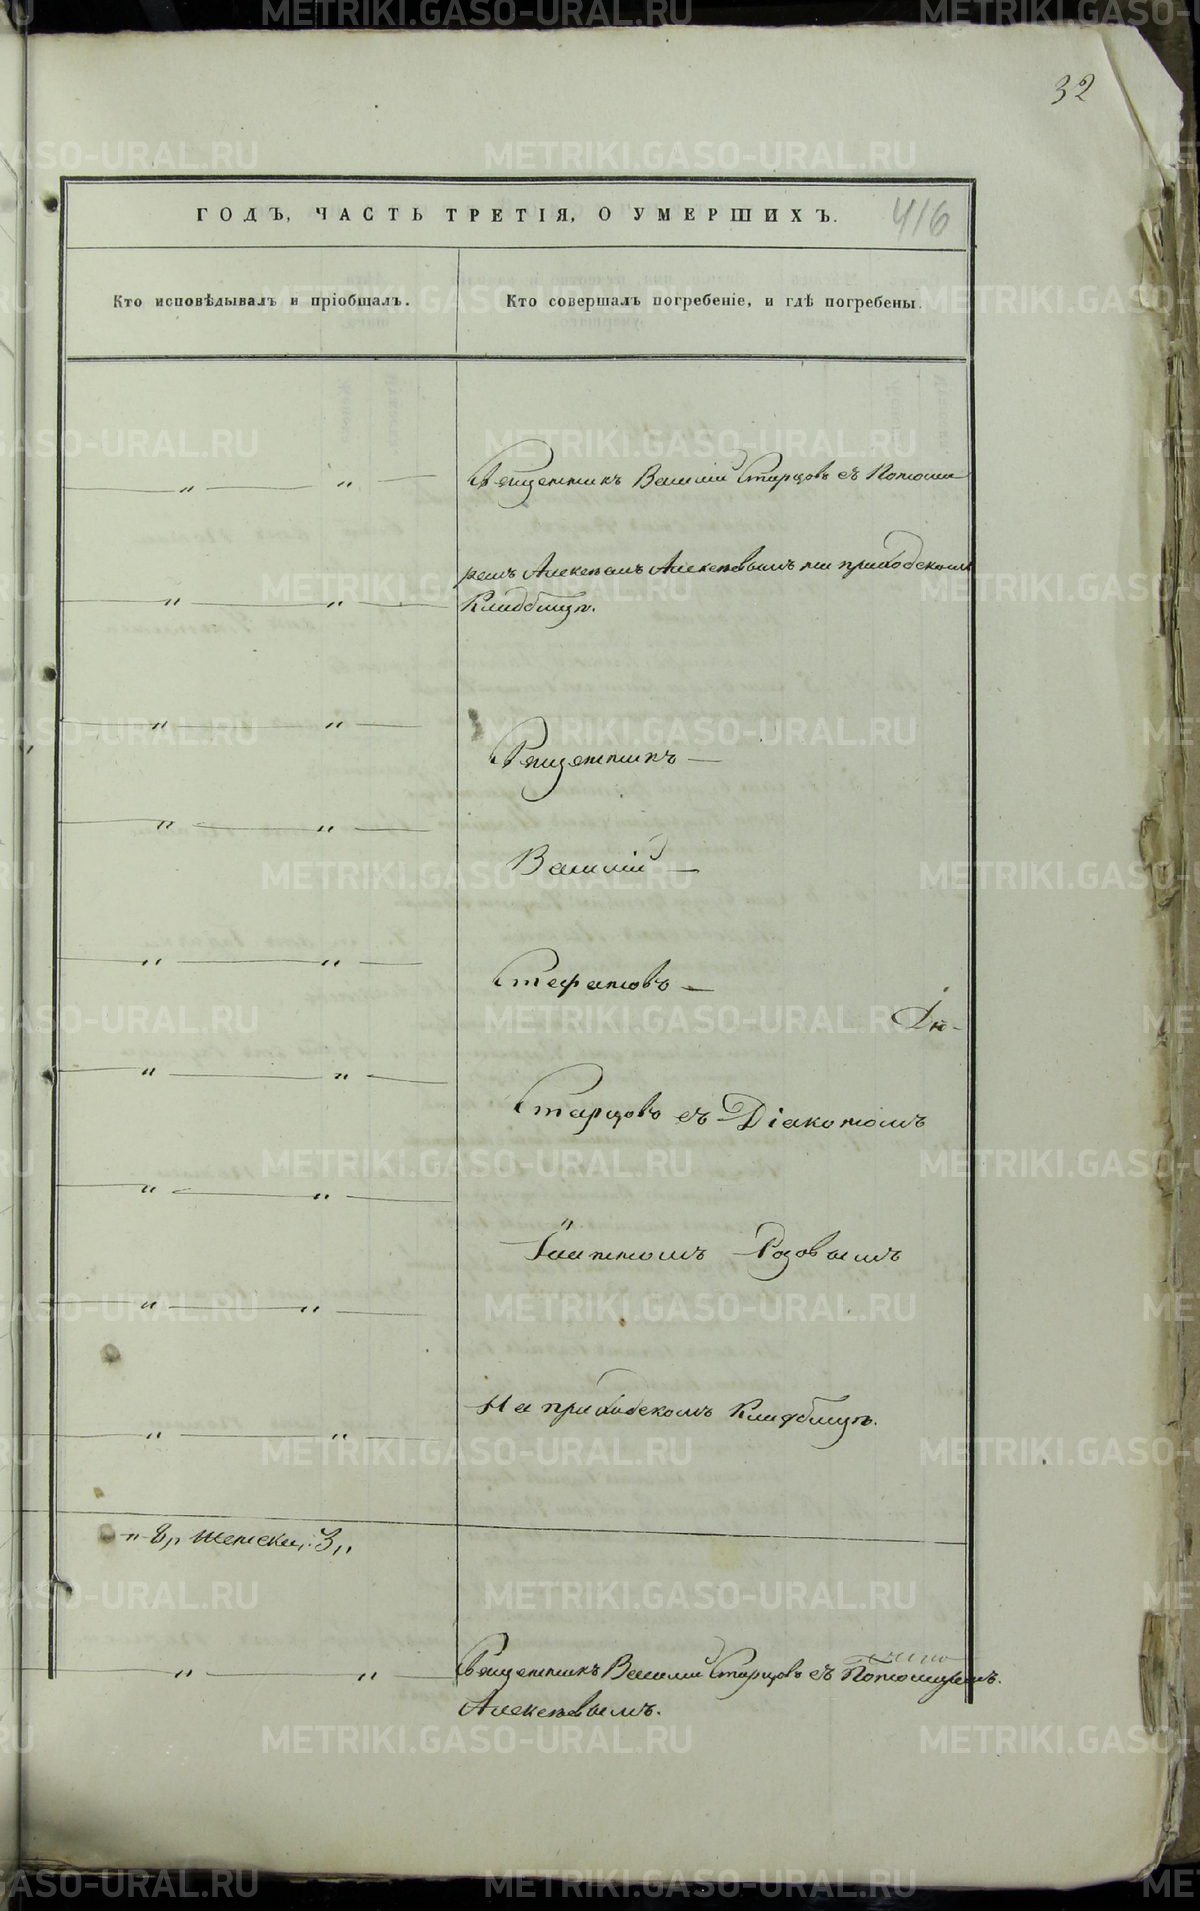 32
ГОДЪ, ЧАСТЬ ТРЕТІЯ, О УМЕРШИХЪ. 416
Кто исповѣдывалъ и пріобщалъ.
Кто совершалъ погребеніе, и гдѣ погребены.
Священникъ Василій Старцовъ съ Пономаремъ
Алексѣевымъ на приходскомъ
Кладбищѣ.
Священникъ —
Василій —
Стефановъ —
Старцовъ съ Діакономъ
Розовымъ
На приходскомъ Кладбищѣ.
Священникъ Василій Старцовъ съ Пономаремъ
Алексѣевымъ.
METRIKI.GASO-URAL.RU